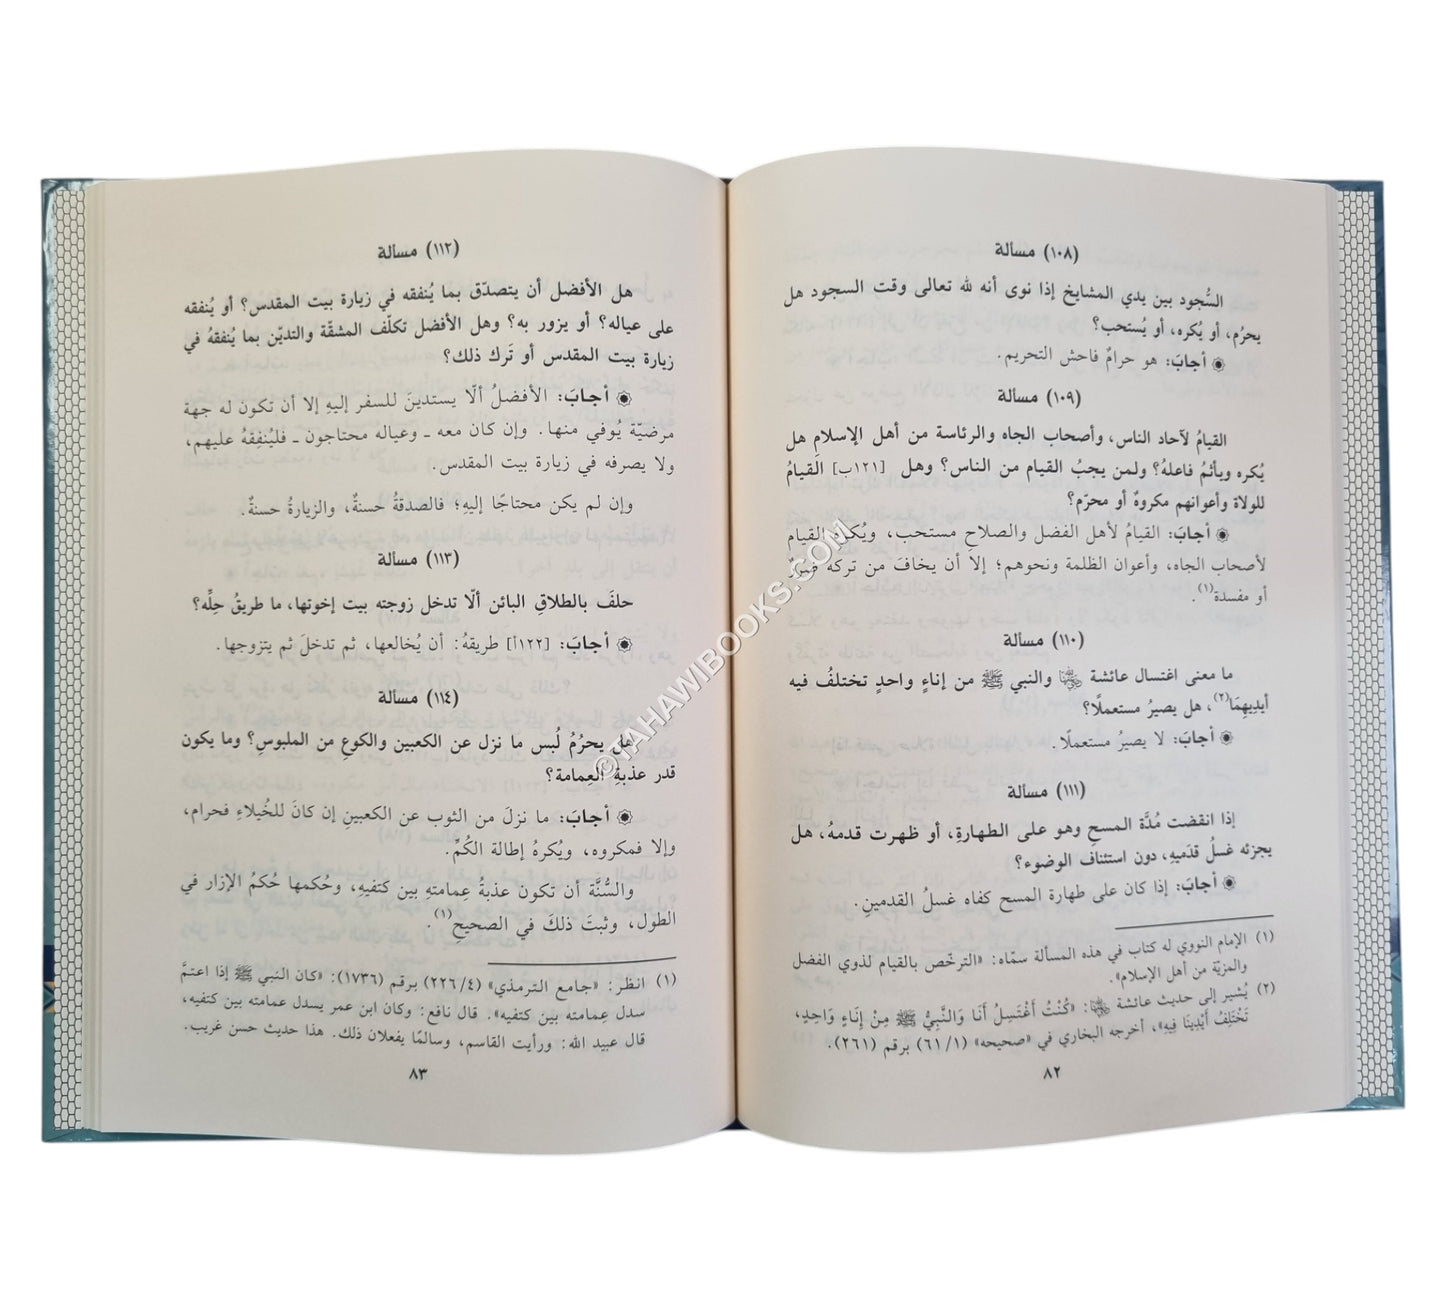 (١٠٨) مسألة
السُّجود بين يدي المشايخ إذا نوى أنه لله تعالى وقت السجود هل
يحرُم، أو يُكره، أو يُستحب؟
۞ أجابَ: هو حرامٌ فاحش التحريم.
(١٠٩) مسألة
القيامُ لآحاد الناس، وأصحاب الجاه والرئاسة من أهل الإسلامِ هل
يُكره ويأثمُ فاعلهُ؟ ولمن يجبُ القيام من الناس؟ وهل [١٢١ب] القيامُ
للولاة وأعوانهم مكروهٌ أو محرّم؟
۞ أجابَ: القيامُ لأهل الفضل والصلاحِ مستحب، ويُكره القيام
لأصحاب الجاه، وأعوان الظلمة ونحوهم؛ إلا أن يخافَ من تركه ضررٌ
أو مفسدة(١).
(١١٠) مسألة
ما معنى اغتسال عائشة رضي الله عنها والنبي ﷺ من إناءٍ واحدٍ تختلفُ فيه
أيدِيهِمَا(٢)، هل يصيرُ مستعملًا؟
۞ أجابَ: لا يصيرُ مستعملًا.
(١١١) مسألة
إذا انقضت مُدَّة المسحِ وهو على الطهارةِ، أو ظهرت قدمهُ، هل
يجزئه غسلُ قدَميهِ، دون استئناف الوضوء؟
۞ أجابَ: إذا كان على طهارة المسح كفاه غسلُ القدمينِ.
(١) الإمام النووي له كتاب في هذه المسألة سمّاه: «الترخّص بالقيام لذوي الفضل
والمزيّة من أهل الإسلام».
(٢) يُشير إلى حديث عائشة رضي الله عنها: «كُنْتُ أَغْتَسِلُ أَنَا وَالنَّبِيُّ ﷺ مِنْ إِنَاءٍ وَاحِدٍ،
تَخْتَلِفُ أَيْدِينَا فِيهِ»، أخرجه البخاري في «صحيحه» (٦١/١) برقم (٢٦١).
٨٢
(١١٢) مسألة
هل الأفضل أن يتصدّق بما يُنفقه في زيارة بيت المقدس؟ أو يُنفقه
على عياله؟ أو يزور به؟ وهل الأفضل تكلّف المشقّة والتديّن بما يُنفقهُ في
زيارة بيت المقدس أو تَرك ذلك؟
۞ أجابَ: الأفضلُ ألّا يستدينَ للسفر إليهِ إلا أن تكون له جهة
مرضيّة يُوفي منها. وإن كان معه ـ وعياله محتاجون ـ فليُنفِقهُ عليهم،
ولا يصرفه في زيارة بيت المقدس.
وإن لم يكن محتاجًا إليهِ؛ فالصدقةُ حسنةٌ، والزيارةُ حسنةٌ.
(١١٣) مسألة
حلفَ بالطلاقِ البائن ألّا تدخل زوجته بيت إخوتها، ما طريقُ حِلِّه؟
۞ أجابَ: [١٢٢أ] طريقهُ: أن يُخالعها، ثم تدخلَ ثم يتزوجها.
(١١٤) مسألة
هل يحرُمُ لُبس ما نزل عن الكعبين والكوعِ من الملبوسِ؟ وما يكون
قدر عذبةِ العِمامة؟
۞ أجابَ: ما نزلَ من الثوب عن الكعبينِ إن كانَ للخُيلاءِ فحرام،
وإلا فمكروه، ويُكرهُ إطالة الكُمِّ.
والسُّنَّة أن تكون عذبةُ عِمامتهِ بين كتفيهِ، وحُكمها حُكمُ الإزار في
الطول، وثبتَ ذلكَ في الصحيحِ(١).
(١) انظر: «جامع الترمذي» (٢٢٦/٤) برقم (١٧٣٦): «كان النبي ﷺ إذا اعتمَّ
سدل عِمامته بين كتفيه». قال نافع: وكان ابن عمر يسدل عمامته بين كتفيه،
قال عبيد الله: ورأيت القاسم، وسالمًا يفعلان ذلك. هذا حديث حسن غريب.
٨٣
©TAHAWIBOOKS.COM